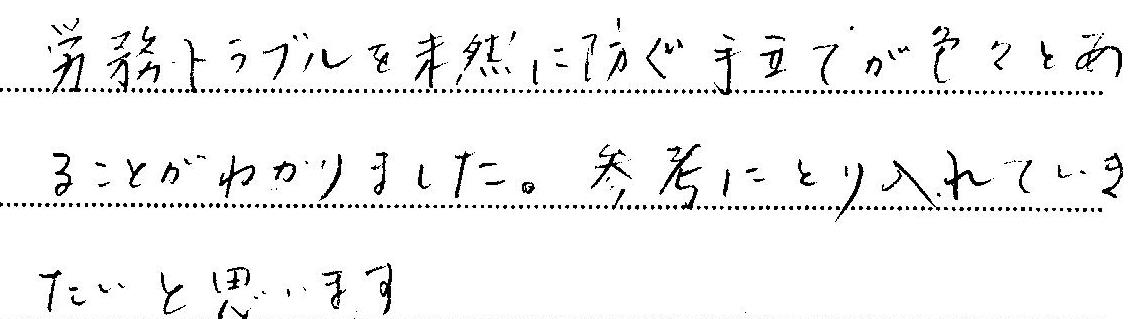 労務トラブルを未然に防ぐ手立てが色々とあ
ることがわかりました。参考にとり入れていき
たいと思います